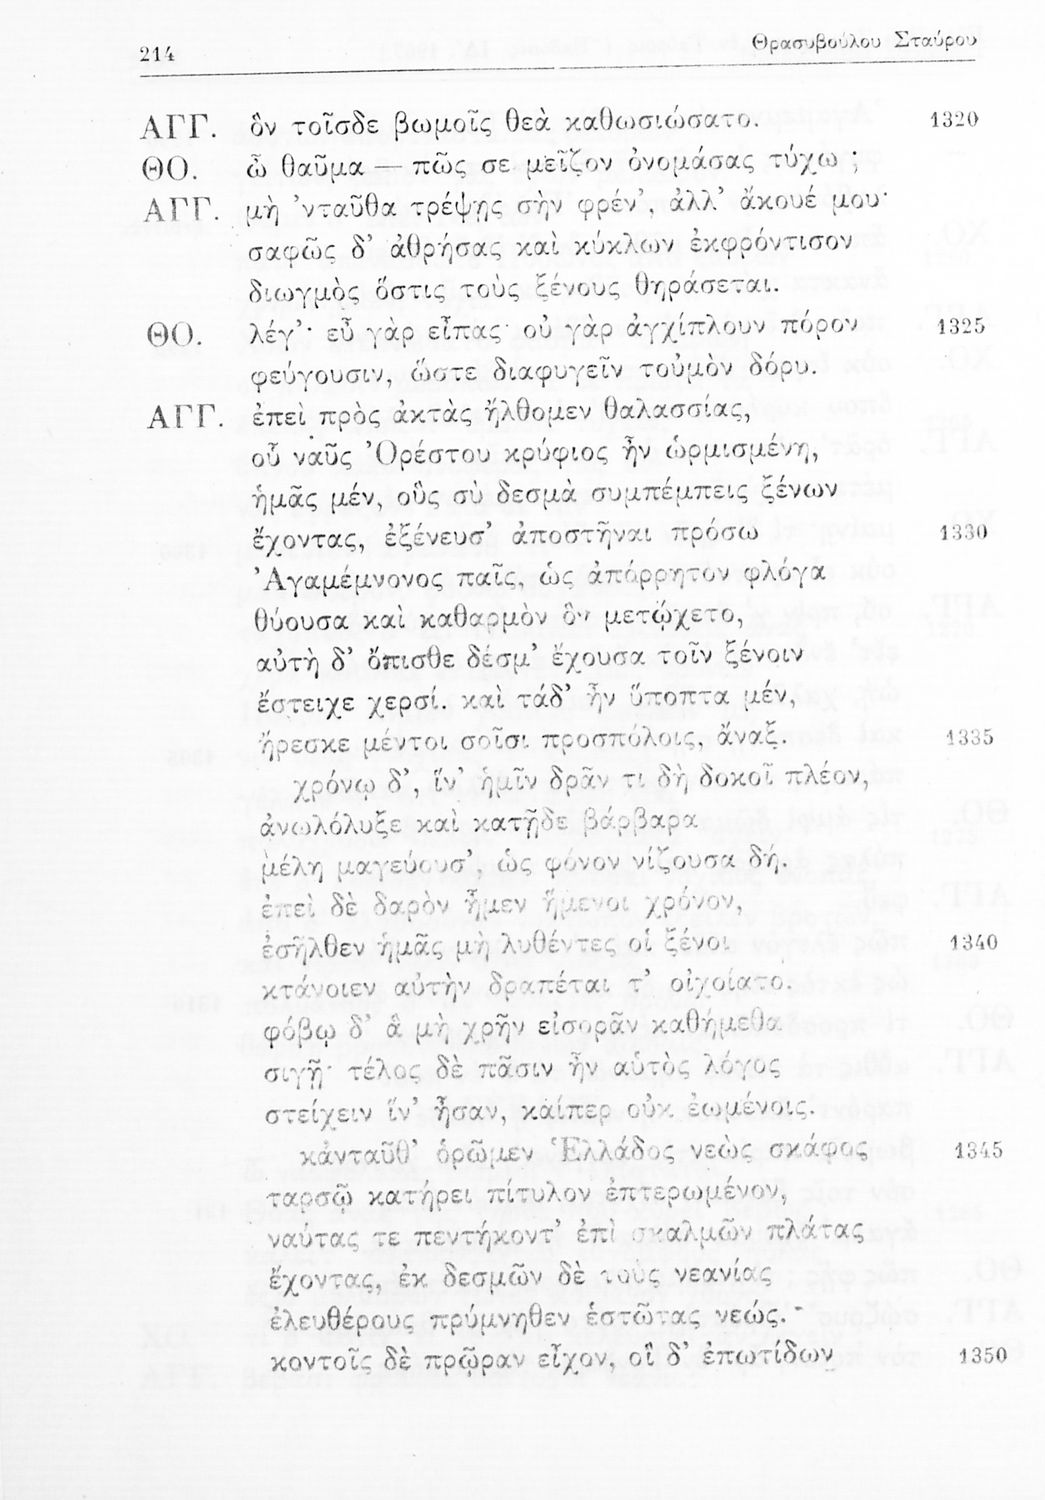 214 Θρασυβούλου Σταύρου
ΑΓΓ. ὃν τοῖσδε βωμοῖς θεὰ καθωσιώσατο. 1320
ΘΟ. ὦ θαῦμα — πῶς σε μεῖζον ὀνομάσας τύχω ;
ΑΓΓ. μὴ ’νταῦθα τρέψῃς σὴν φρέν’, ἀλλ’ ἄκουέ μου·
σαφῶς δ’ ἀθρήσας καὶ κύκλων ἐκφρόντισον
διωγμὸς ὅστις τοὺς ξένους θηράσεται.
ΘΟ. λέγ’· εὖ γὰρ εἶπας· οὐ γὰρ ἀγχίπλουν πόρον 1325
φεύγουσιν, ὥστε διαφυγεῖν τοὐμὸν δόρυ.
ΑΓΓ. ἐπεὶ πρὸς ἀκτὰς ἤλθομεν θαλασσίας,
οὗ ναῦς Ὀρέστου κρύφιος ἦν ὡρμισμένη,
ἡμᾶς μέν, οὓς σὺ δεσμὰ συμπέμπεις ξένων
ἔχοντας, ἐξένευσ’ ἀποστῆναι πρόσω 1330
Ἀγαμέμνονος παῖς, ὡς ἀπόρρητον φλόγα
θύουσα καὶ καθαρμὸν ὃν μετῴχετο,
αὐτὴ δ’ ὄπισθε δέσμ’ ἔχουσα τοῖν ξένοιν
ἔστειχε χερσί. καὶ τάδ’ ἦν ὕποπτα μέν,
ἤρεσκε μέντοι σοῖσι προσπόλοις, ἄναξ. 1335
χρόνῳ δ’, ἵν’ ἡμῖν δρᾶν τι δὴ δοκοῖ πλέον,
ἀνωλόλυξε καὶ κατῇδε βάρβαρα
μέλη μαγεύουσ’, ὡς φόνον νίζουσα δή.
ἐπεὶ δὲ δαρὸν ἦμεν ἥμενοι χρόνον,
ἐσῆλθεν ἡμᾶς μὴ λυθέντες οἱ ξένοι 1340
κτάνοιεν αὐτὴν δραπέται τ’ οἰχοίατο.
φόβῳ δ’ ἃ μὴ χρῆν εἰσορᾶν καθήμεθα
σιγῇ· τέλος δὲ πᾶσιν ἦν αὑτὸς λόγος
στείχειν ἵν’ ἦσαν, καίπερ οὐκ ἐωμένοις.
κἀνταῦθ’ ὁρῶμεν Ἑλλάδος νεὼς σκάφος 1345
ταρσῷ κατήρει πίτυλον ἐπτερωμένον,
ναύτας τε πεντήκοντ’ ἐπὶ σκαλμῶν πλάτας
ἔχοντας, ἐκ δεσμῶν δὲ τοὺς νεανίας
ἐλευθέρους πρύμνηθεν ἑστῶτας νεώς.
κοντοῖς δὲ πρῷραν εἶχον, οἳ δ’ ἐπωτίδων 1350